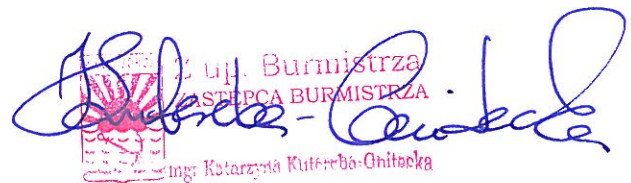 Z up. Burmistrza
ZASTĘPCA BURMISTRZA
mgr Katarzyna Kuterba-Onitecka